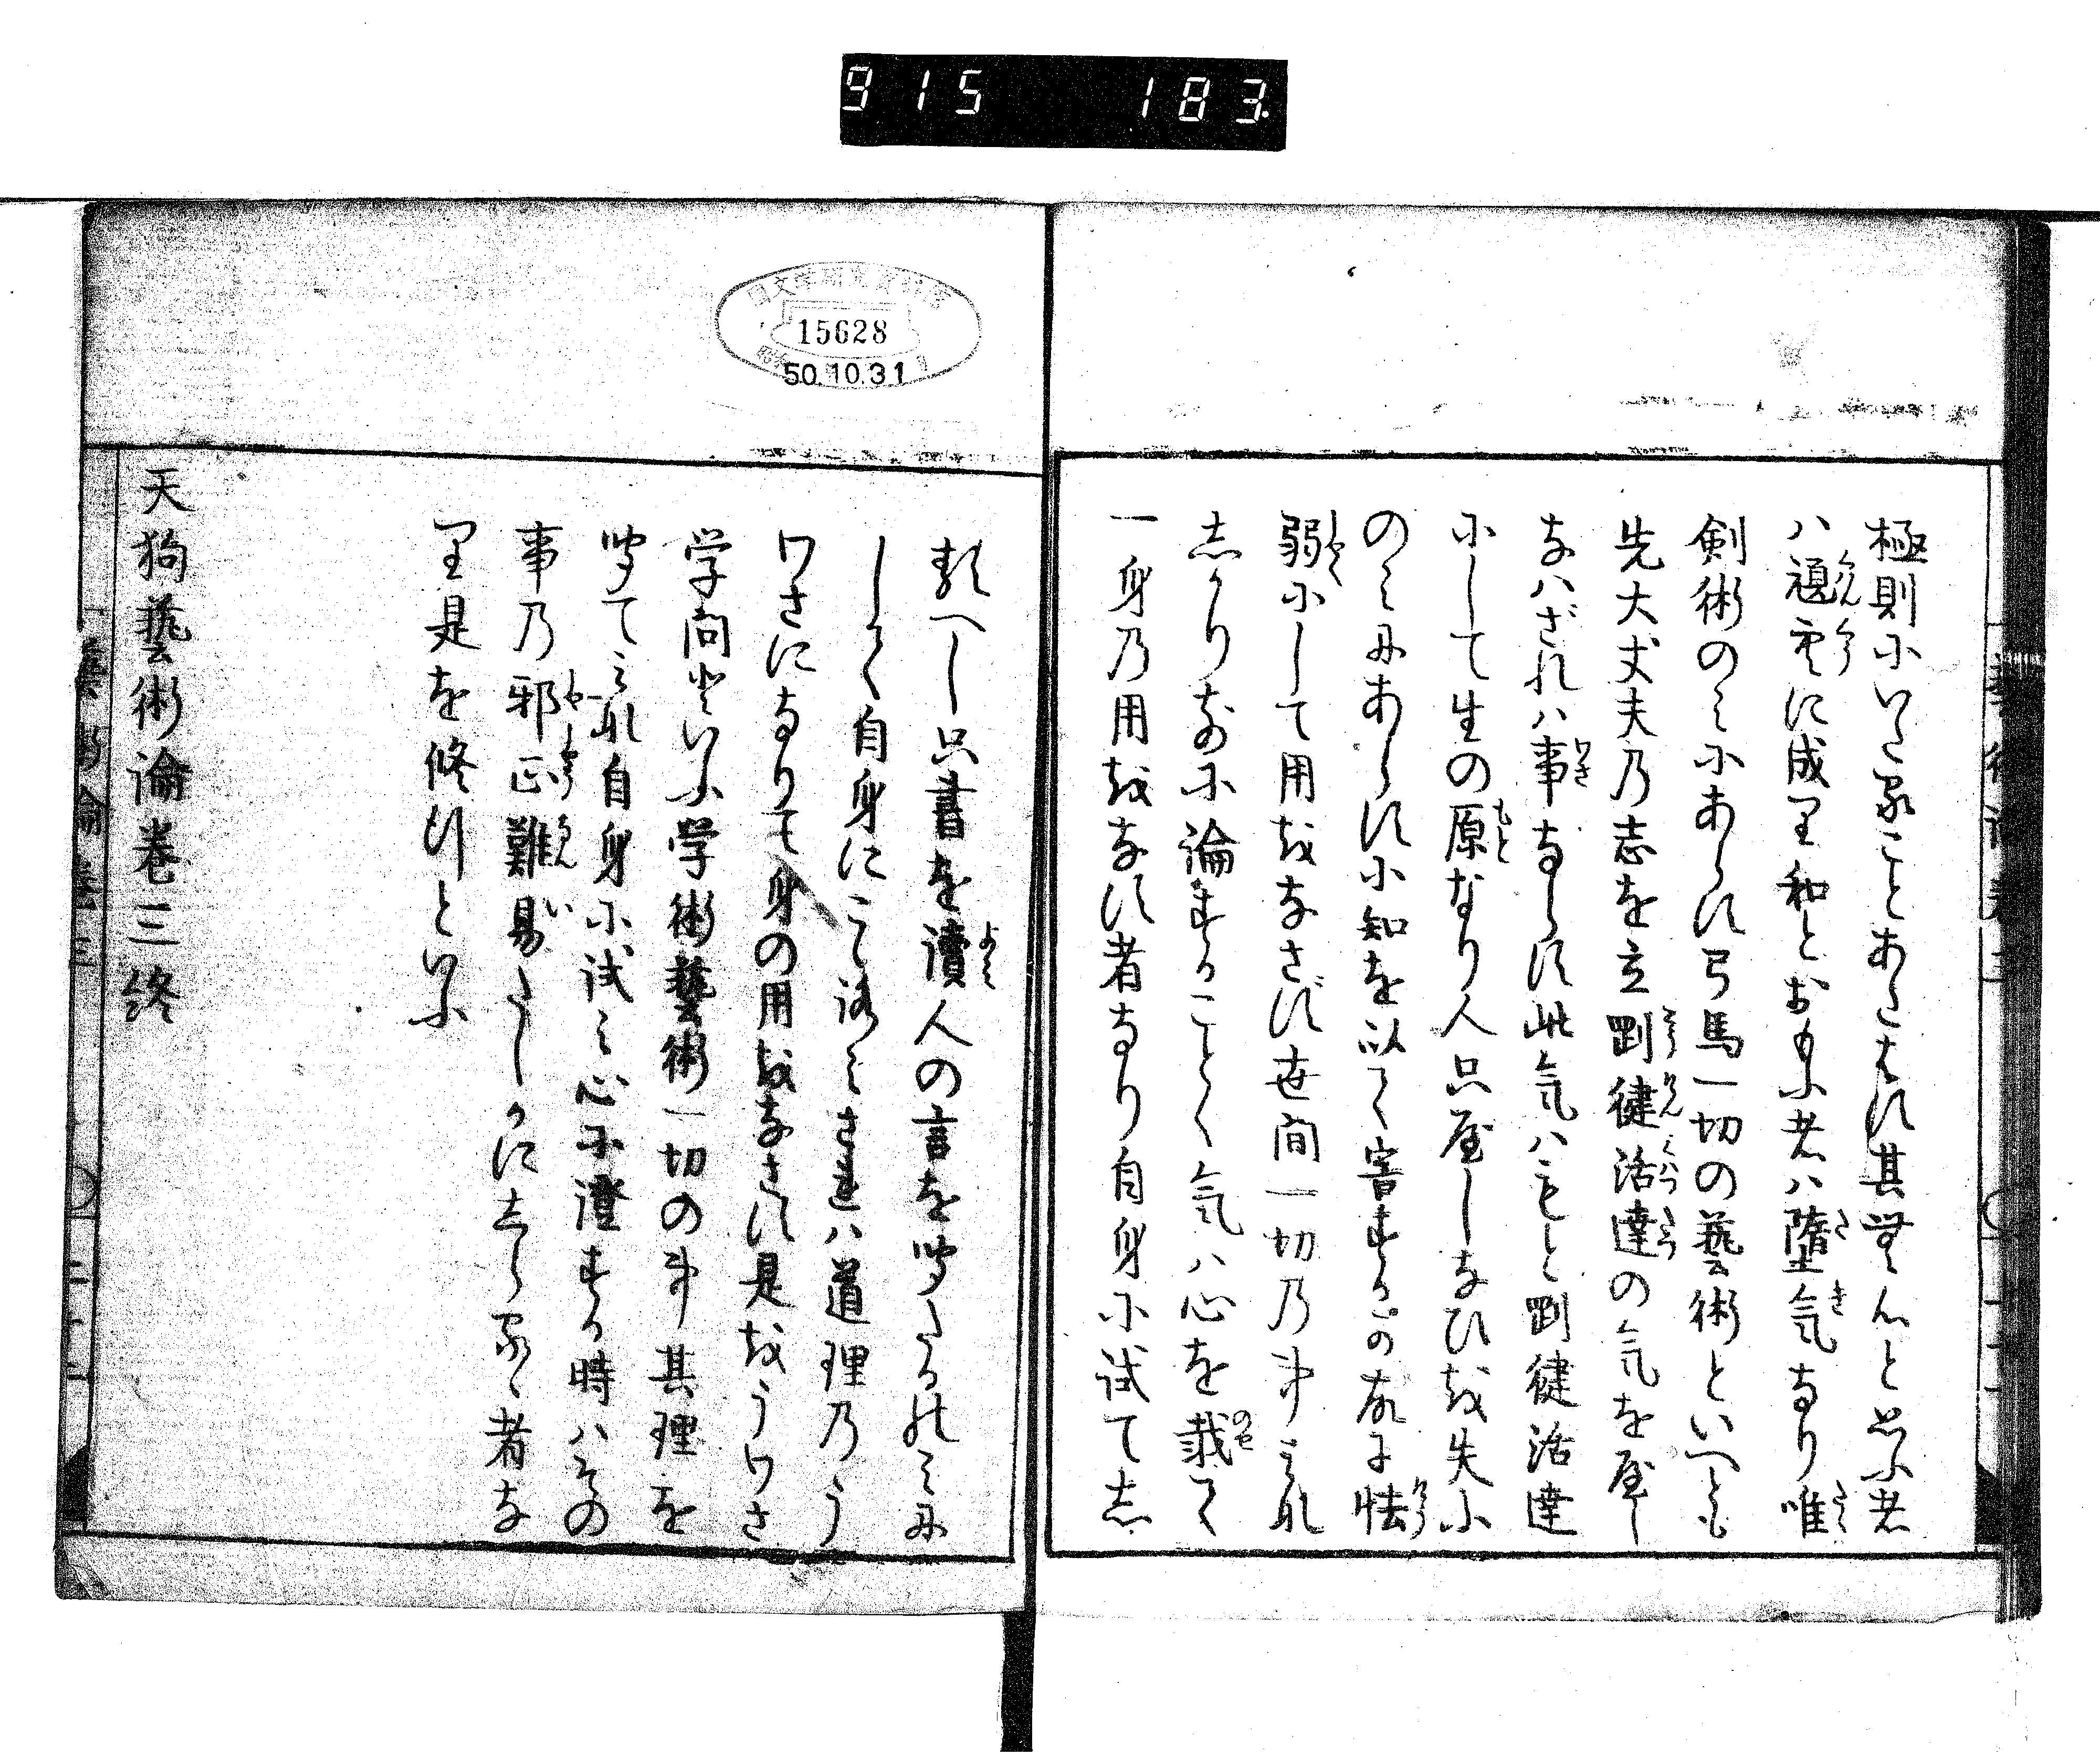 915 183
極則にいたることあたはす其無心と思ふ者
ハ頑空に成里和とおもふ者ハ墮気なり唯
剣術のミにあらす弓馬一切の藝術といへとも
先大丈夫乃志を立剛健活達の気を屋し
なハざれハ事ならす此気ハもと剛健活達
にして生の原なり人只屋しなひを失ふ
のミにあらす小知を以て害するが故に怯
弱にして用をなさず世間一切乃事これ
志かりなお論することく気ハ心を載て
一身乃用をなす者なり自身に試て志
るへし只書を讀人の言を聞たるのミに
して自身にこころミされハ道理乃う
ワさになりて身の用をなさす是をうワさ
学問といふ学術藝術一切の事其理を
聞てこれ自身に試ミ心に證する時ハその
事乃邪正難易たしかに志らるゝ者な
里是を修行といふ
天狗藝術論巻三終
15628
50.10.31